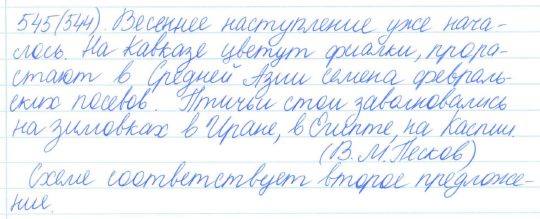 545(544) Весеннее наступление уже нача-
лось. На Кавказе цветут фиалки, прора-
стают в Средней Азии семена февраль-
ских посевов. Птичьи стаи заволновались
на зимовках в Иране, в Египте, на Каспии.
(В. М. Песков)
Схеме соответствует второе предложе-
ние.